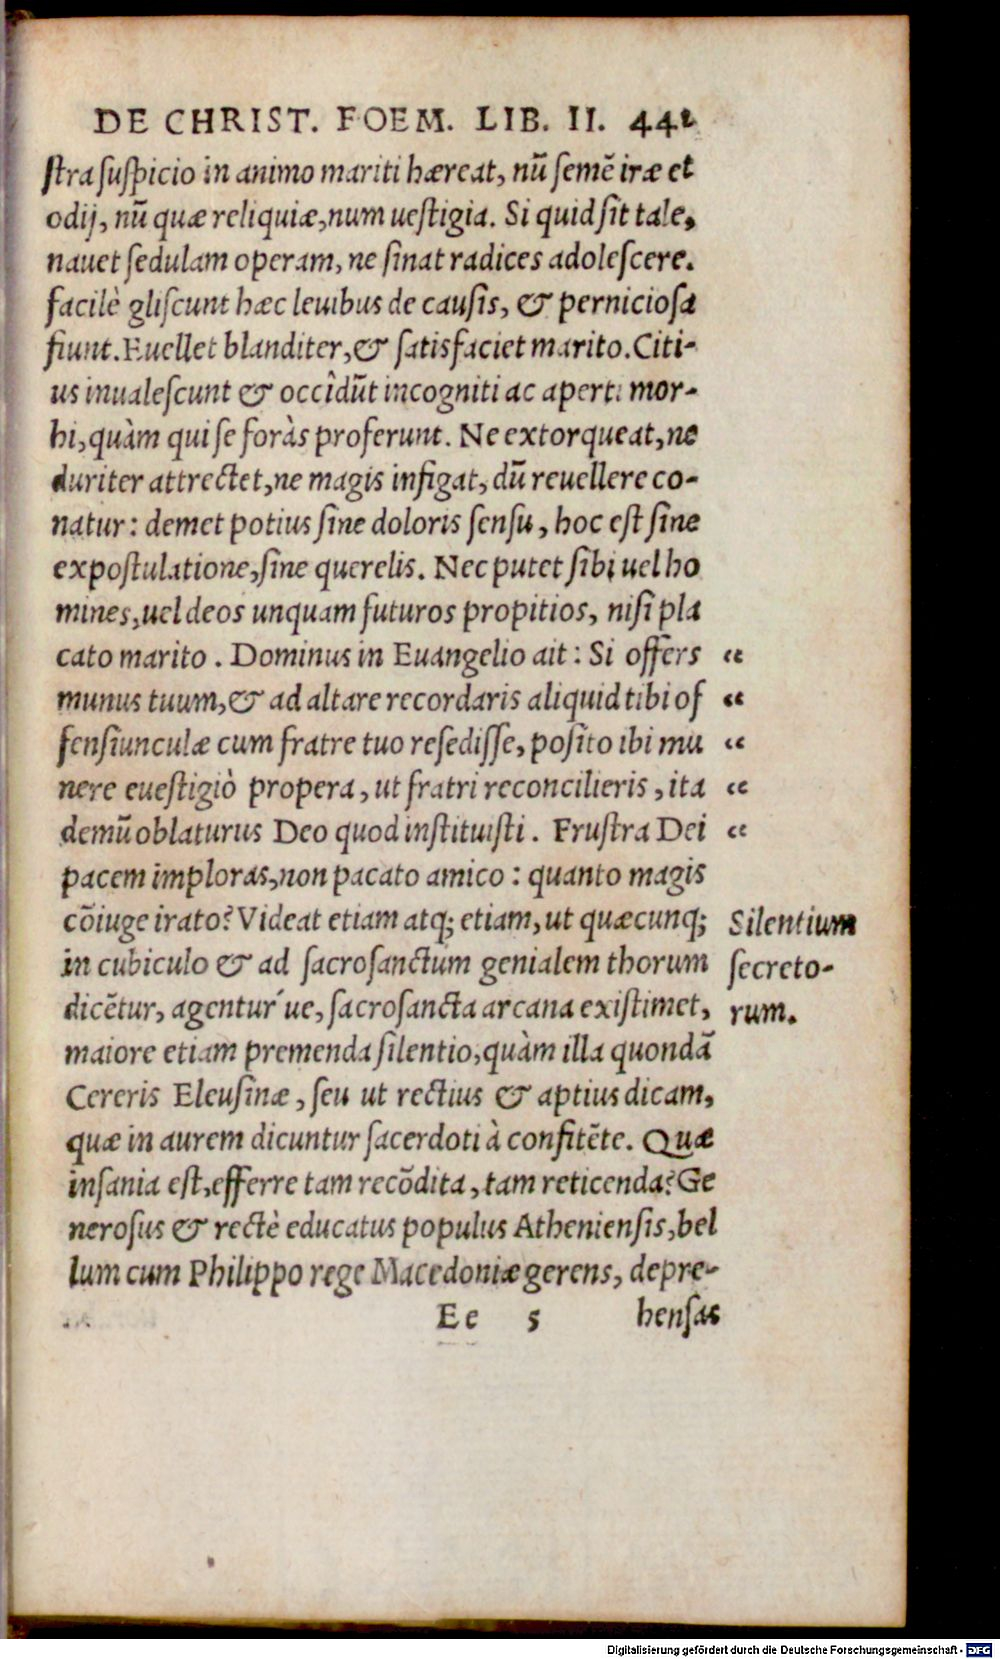 DE CHRIST. FOEM. LIB. II. 441
stra suspicio in animo mariti hæreat, nũ semẽ iræ et
odij, nũ quæ reliquiæ, num uestigia. Si quid sit tale,
nauet sedulam operam, ne sinat radices adolescere.
facilè gliscunt hæc leuibus de causis, & perniciosa
fiunt. Euellet blanditer, & satisfaciet marito. Citi-
us inualescunt & occîdũt incogniti ac aperti mor-
bi, quàm qui se foràs proferunt. Ne extorqueat, ne
duriter attrectet, ne magis infigat, dũ reuellere co-
natur: demet potius sine doloris sensu, hoc est sine
expostulatione, sine querelis. Nec putet sibi uel ho
mines, uel deos unquam futuros propitios, nisi pla
cato marito. Dominus in Euangelio ait: Si offers “
munus tuum, & ad altare recordaris aliquid tibi of “
fensiunculæ cum fratre tuo resedisse, posito ibi mu “
nere euestigiò propera, ut fratri reconcilieris, ita “
demũ oblaturus Deo quod instituisti. Frustra Dei “
pacem imploras, non pacato amico: quanto magis
cõiuge irato? Videat etiam atq; etiam, ut quæcunq;
in cubiculo & ad sacrosanctum genialem thorum
dicẽtur, agentur´ue, sacrosancta arcana existimet,
maiore etiam premenda silentio, quàm illa quondã
Cereris Eleusinæ, seu ut rectius & aptius dicam,
quæ in aurem dicuntur sacerdoti à confitẽte. Quæ
insania est, efferre tam recõdita, tam reticenda? Ge
nerosus & rectè educatus populus Atheniensis, bel
lum cum Philippo rege Macedoniæ gerens, depre-
Ee 5 hensas
Silentium
secreto-
rum.
Digitalisierung gefördert durch die Deutsche Forschungsgemeinschaft - DFG